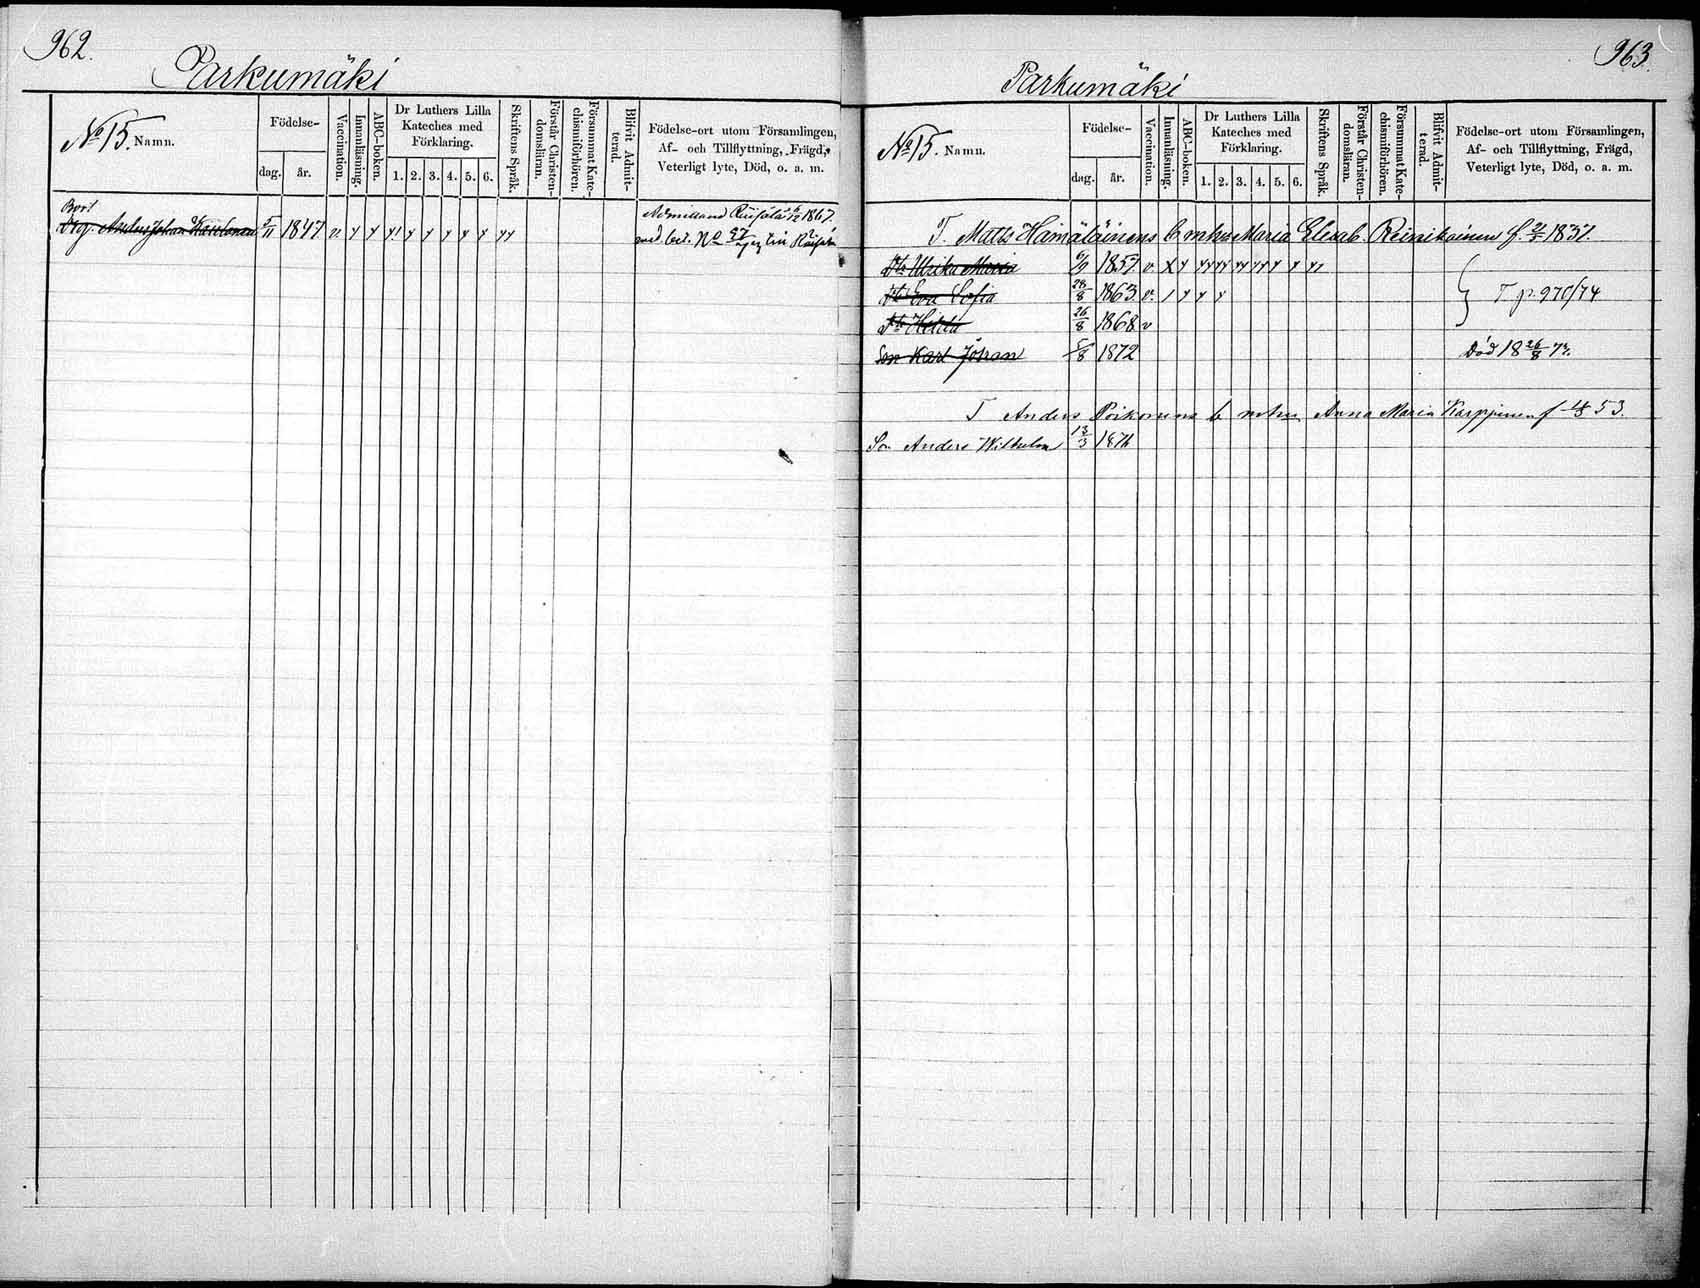 962.
Parkumäki
No 15. Namn.
Födelse-
dag.
år.
Vaccination.
Innanläsning.
ABC-boken.
Dr Luthers Lilla
Kateches med
Förklaring.
1. 2. 3. 4. 5. 6.
Skriftens Språk.
Förstår Christen-
domsläran.
Försummat Kate-
chismiförhören.
Blifvit Admit-
terad.
Födelse-ort utom Församlingen,
Af- och Tillflyttning, Frägd,
Veterligt lyte, Död, o. a. m.
Bort
Anders Johan 5/11 1847 v.
1867
No 97
963.
Parkumäki
No 15. Namn.
Födelse-
dag.
år.
Vaccination.
Innanläsning.
ABC-boken.
Dr Luthers Lilla
Kateches med
Förklaring.
1. 2. 3. 4. 5. 6.
Skriftens Språk.
Förstår Christen-
domsläran.
Försummat Kate-
chismiförhören.
Blifvit Admit-
terad.
Födelse-ort utom Församlingen,
Af- och Tillflyttning, Frägd,
Veterligt lyte, Död, o. a. m.
T. Matts Hämäläinens Maria Elisab. Reinikainen f. 1837.
Ulrika Maria 1857 v
Eva Sofia 28/8 1863 v.
Hilda 26/8 1868 v
T p. 970/74
Son Karl Johan 5/8 1872 Död 18 26/8 72.
T Anders Anna Maria Karppinen f 53.
Son Anders Wilhelm 13/3 1874